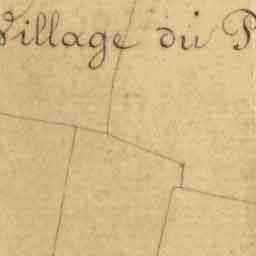 Village du P